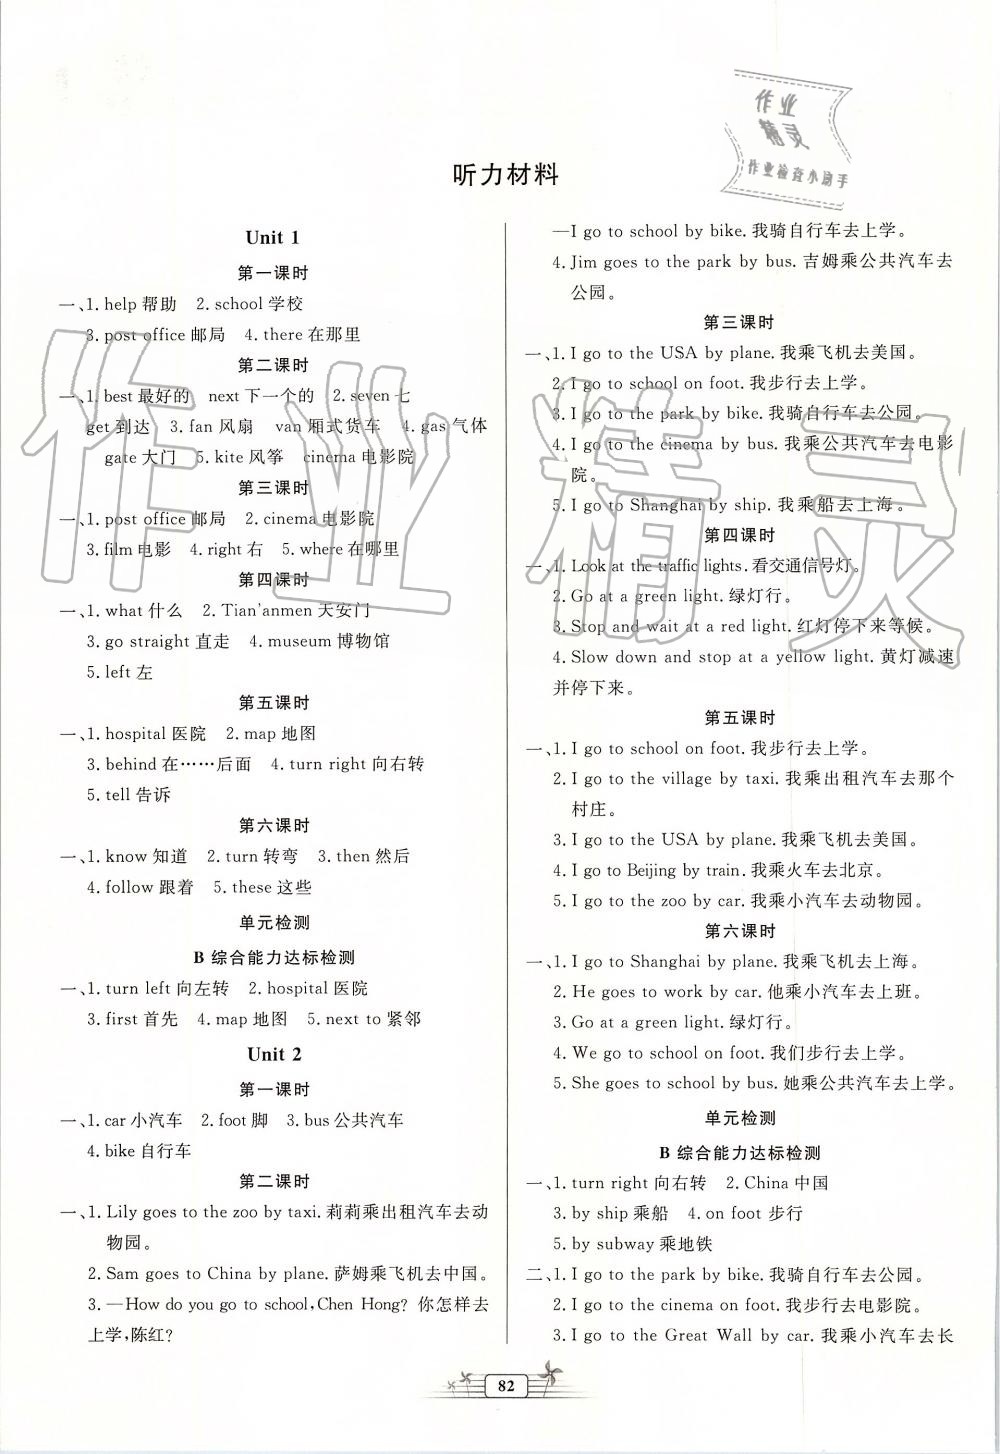 作业
精灵
作业检查小助手
听力材料
Unit 1
第一课时
一、1. help 帮助 2. school 学校
3. post office 邮局 4. there 在那里
第二课时
一、1. best 最好的 next 下一个的 2. seven 七
get 到达 3. fan 风扇 van 厢式货车 4. gas 气体
gate 大门 5. kite 风筝 cinema 电影院
第三课时
一、1. post office 邮局 2. cinema 电影院
3. film 电影 4. right 右 5. where 在哪里
第四课时
一、1. what 什么 2. Tian'anmen 天安门
3. go straight 直走 4. museum 博物馆
5. left 左
第五课时
一、1. hospital 医院 2. map 地图
3. behind 在……后面 4. turn right 向右转
5. tell 告诉
第六课时
一、1. know 知道 2. turn 转弯 3. then 然后
4. follow 跟着 5. these 这些
单元检测
B 综合能力达标检测
一、1. turn left 向左转 2. hospital 医院
3. first 首先 4. map 地图 5. next to 紧邻
Unit 2
第一课时
一、1. car 小汽车 2. foot 脚 3. bus 公共汽车
4. bike 自行车
第二课时
一、1. Lily goes to the zoo by taxi. 莉莉乘出租汽车去动
物园。
2. Sam goes to China by plane. 萨姆乘飞机去中国。
3. —How do you go to school, Chen Hong? 你怎样去
上学,陈红?
—I go to school by bike. 我骑自行车去上学。
4. Jim goes to the park by bus. 吉姆乘公共汽车去
公园。
第三课时
一、1. I go to the USA by plane. 我乘飞机去美国。
2. I go to school on foot. 我步行去上学。
3. I go to the park by bike. 我骑自行车去公园。
4. I go to the cinema by bus. 我乘公共汽车去电影
院。
5. I go to Shanghai by ship. 我乘船去上海。
第四课时
一、1. Look at the traffic lights. 看交通信号灯。
2. Go at a green light. 绿灯行。
3. Stop and wait at a red light. 红灯停下来等候。
4. Slow down and stop at a yellow light. 黄灯减速
并停下来。
第五课时
一、1. I go to school on foot. 我步行去上学。
2. I go to the village by taxi. 我乘出租汽车去那个
村庄。
3. I go to the USA by plane. 我乘飞机去美国。
4. I go to Beijing by train. 我乘火车去北京。
5. I go to the zoo by car. 我乘小汽车去动物园。
第六课时
一、1. I go to Shanghai by plane. 我乘飞机去上海。
2. He goes to work by car. 他乘小汽车去上班。
3. Go at a green light. 绿灯行。
4. We go to school on foot. 我们步行去上学。
5. She goes to school by bus. 她乘公共汽车去上学。
单元检测
B 综合能力达标检测
一、1. turn right 向右转 2. China 中国
3. by ship 乘船 4. on foot 步行
5. by subway 乘地铁
二、1. I go to the park by bike. 我骑自行车去公园。
2. I go to the cinema on foot. 我步行去电影院。
3. I go to the Great Wall by car. 我乘小汽车去长
82
作业精灵